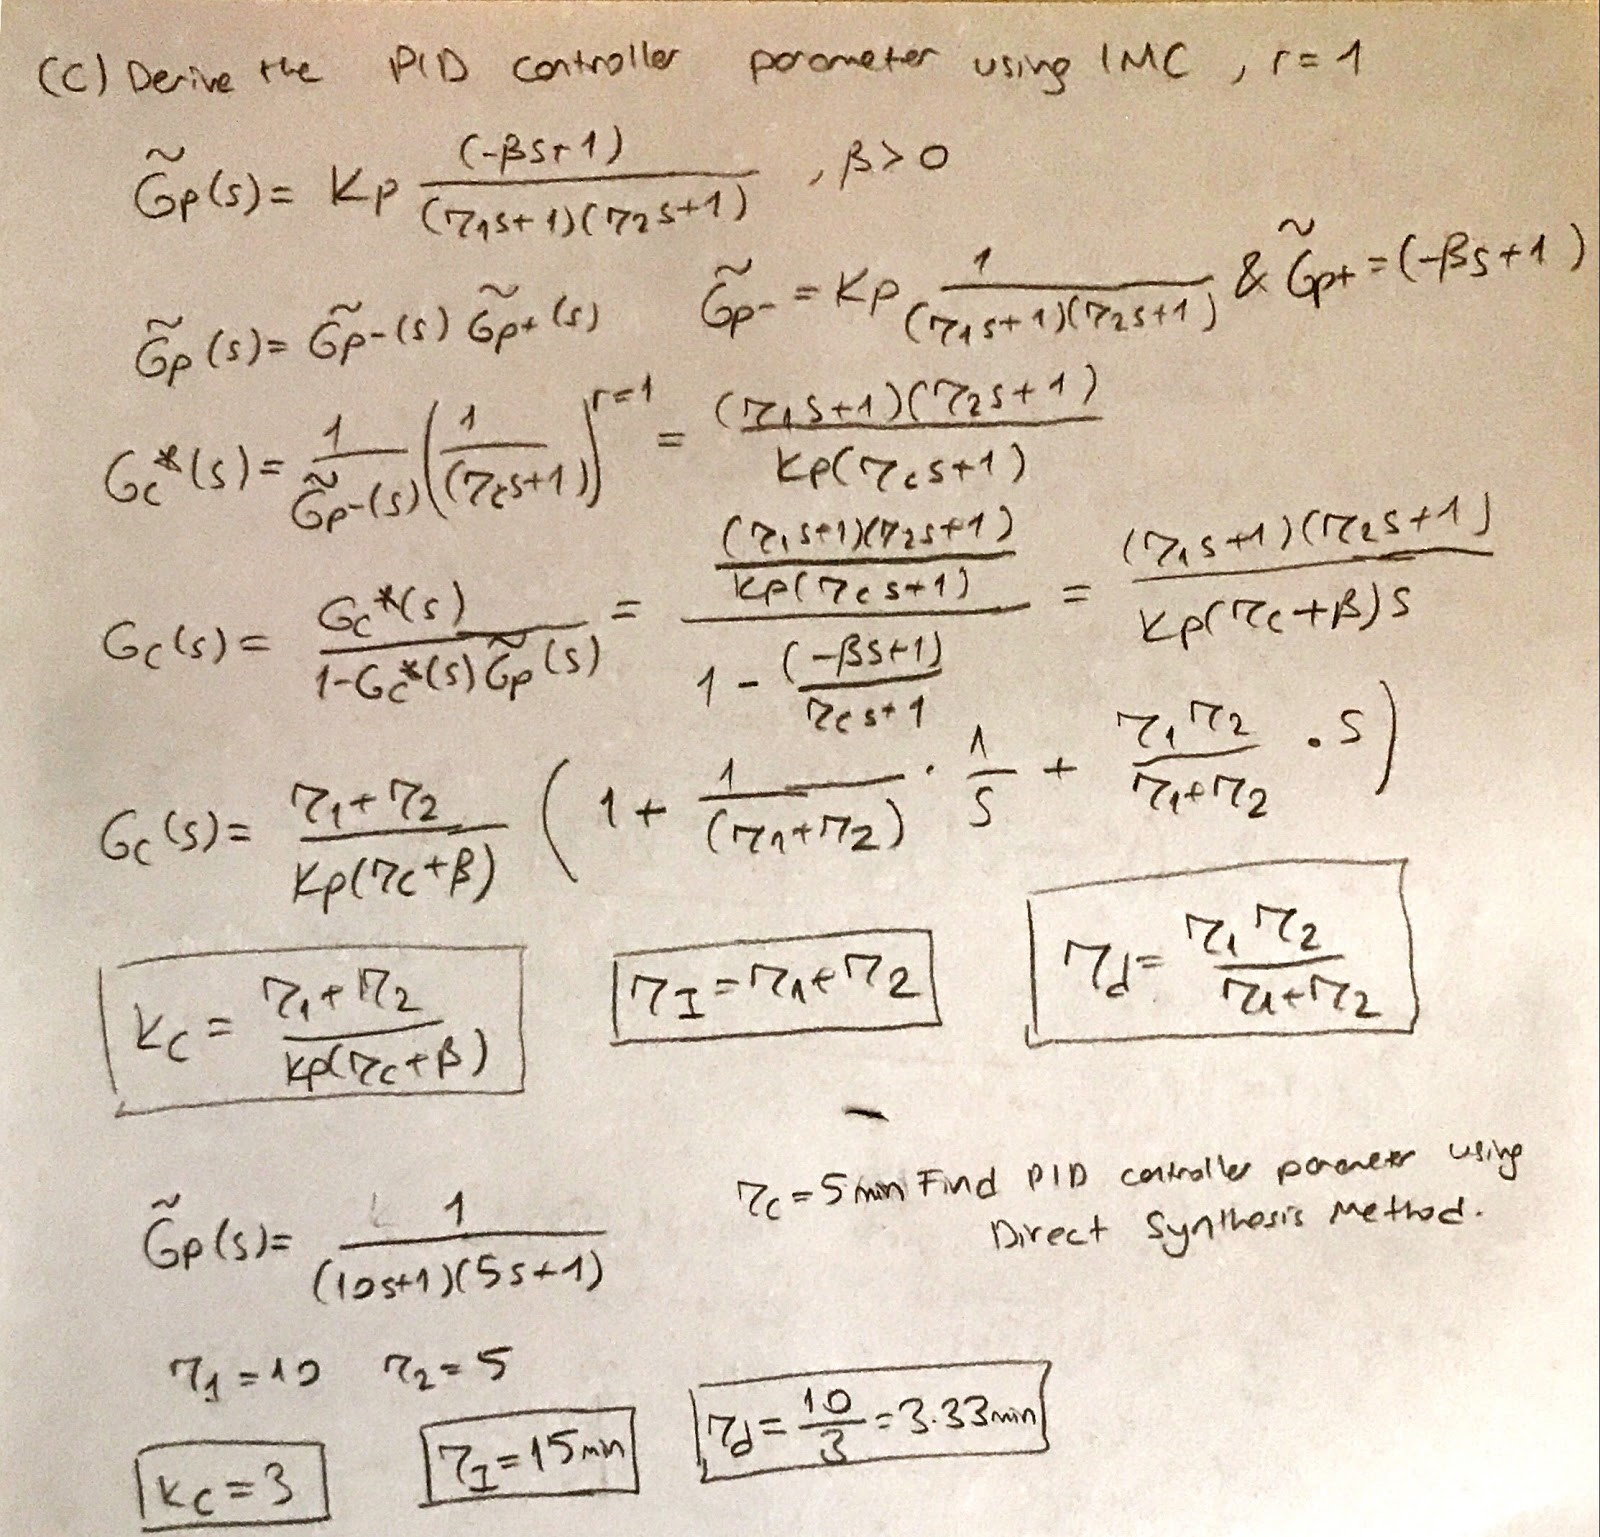 (C) Derive the PID controller parameter using IMC, r = 1
G̃p(s) = Kp (-βs+1) / (τ1s+1)(τ2s+1) , β > 0
G̃p(s) = G̃p-(s) G̃p+(s)    G̃p- = Kp 1 / (τ1s+1)(τ2s+1) & G̃p+ = (-βs+1)
Gc*(s) = 1 / G̃p-(s) (1 / (τcs+1))^r=1 = (τ1s+1)(τ2s+1) / Kp(τcs+1)
Gc(s) = Gc*(s) / 1-Gc*(s)G̃p(s) = (τ1s+1)(τ2s+1) / Kp(τcs+1) / 1 - (-βs+1) / τcs+1 = (τ1s+1)(τ2s+1) / Kp(τc+β)s
Gc(s) = τ1+τ2 / Kp(τc+β) ( 1 + 1 / (τ1+τ2) . 1 / s + τ1τ2 / τ1+τ2 . s )
Kc = τ1+τ2 / Kp(τc+β)    τI = τ1+τ2    τd = τ1τ2 / τ1+τ2
τc = 5min Find PID controller parameter using
Direct Synthesis Method.
G̃p(s) = 1 / (10s+1)(5s+1)
τ1 = 10    τ2 = 5
Kc = 3    τI = 15min    τd = 10 / 3 = 3.33min